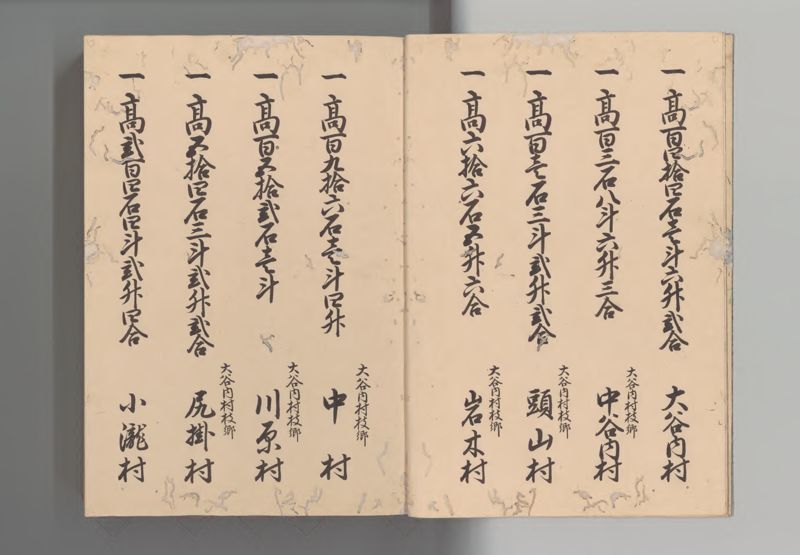 一高百四拾四石壱斗六升弐合 大谷内村
一高百三石八斗六升三合 大谷内村枝郷 中谷内村
一高百壱石三斗弐升弐合 大谷内村枝郷 頭山村
一高六拾六石五升六合 大谷内村枝郷 岩木村
一高百九拾六石壱斗四升 大谷内村枝郷 中村
一高百五拾弐石壱斗 大谷内村枝郷 川原村
一高五拾四石三斗弐升弐合 大谷内村枝郷 尻掛村
一高弐百四石四斗弐升四合 小瀧村